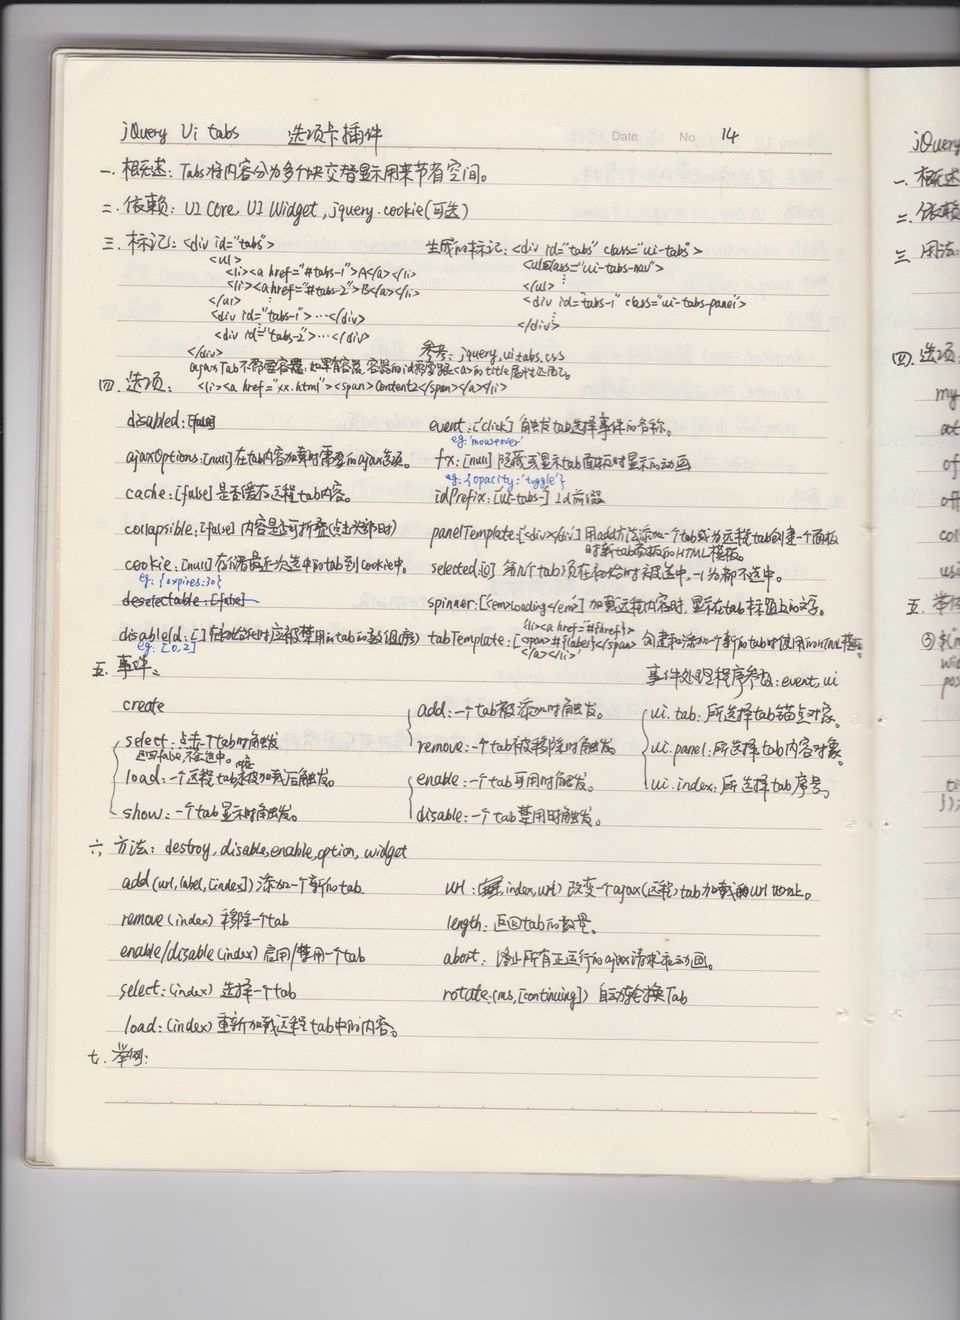 jQuery Ui tabs 选项卡插件 Date No 14
一. 概述: Tabs将内容分为多个块交替显示用来节省空间。
二. 依赖: UI Core, UI Widget, jquery.cookie(可选)
三. 标记: <div id="tabs"> 生成的标记: <div id="tabs" class="ui-tabs">
<ul> <ul class="ui-tabs-nav">
<li><a href="#tabs-1">A</a></li>
<li><a href="#tabs-2">B</a></li> </ul>
</ul> <div id="tabs-1" class="ui-tabs-panel">
<div id="tabs-1">…</div> </div>
<div id="tabs-2">…</div>
</div> 参考: jquery.ui.tabs.css
ajax Tab不需要容器,如果有容器,容器的id需要跟<a>的title属性匹配。
四. 选项: <li><a href="xx.html"><span>Content2</span></a></li>
disabled: [false] event: ['click'] 触发tab选择事件的名称。
eg: 'mouseover'
ajaxOptions: [null] 在tab内容加载时需要的ajax选项。 fx: [null] 隐藏或显示tab面板时显示的动画
eg: {opacity: 'toggle'}
cache: [false] 是否缓存远程tab内容。 idPrefix: [ui-tabs-] id前缀
collapsible: [false] 内容是否可折叠(点击头部时) panelTemplate: ['<div></div>'] 用add方法添加一个tab或为远程tab创建一个面板
时新tab面板的HTML模板。
cookie: [null] 存储最近一次选中的tab到cookie中。 selected: [0] 第几个tab项在初始时被选中。-1为都不选中。
eg: {expires:30}
deselectable: [false] spinner: ['<em>Loading</em>'] 加载远程内容时,显示在tab标题上的文字。
disabled: [] 在初始化时应被禁用的tab的数组(序) tabTemplate: ['<li><a href="#{href}">
<span>#{label}</span> 创建和添加一个新的tab时使用的HTML模板。
eg: [0,2] </a></li>'
五. 事件: 事件处理程序参数: event, ui
create add: 一个tab被添加时触发。 ui.tab: 所选择tab锚点对象。
select: 点击一个tab时触发 remove: 一个tab被移除时触发。 ui.panel: 所选择tab内容对象。
返回false,不会选中。
load: 一个远程tab被加载后触发。 enable: 一个tab可用时触发。 ui.index: 所选择tab序号。
show: 一个tab显示时触发。 disable: 一个tab禁用时触发。
六. 方法: destroy, disable, enable, option, widget
add(url, label, [index]) 添加一个新的tab url: (index, url) 改变一个ajax(远程)tab加载的url地址。
remove(index) 移除一个tab length: 返回tab的数量。
enable/disable(index) 启用/禁用一个tab abort: 停止所有正运行的ajax请求和动画。
select: (index) 选择一个tab rotate: (ms, [continuing]) 自动轮换Tab
load: (index) 重新加载远程tab中的内容。
七. 举例:
jQuery
一. 概述
二. 依赖
三. 用法:
四. 选项:
my
at
of
off
col
usi
五. 举例